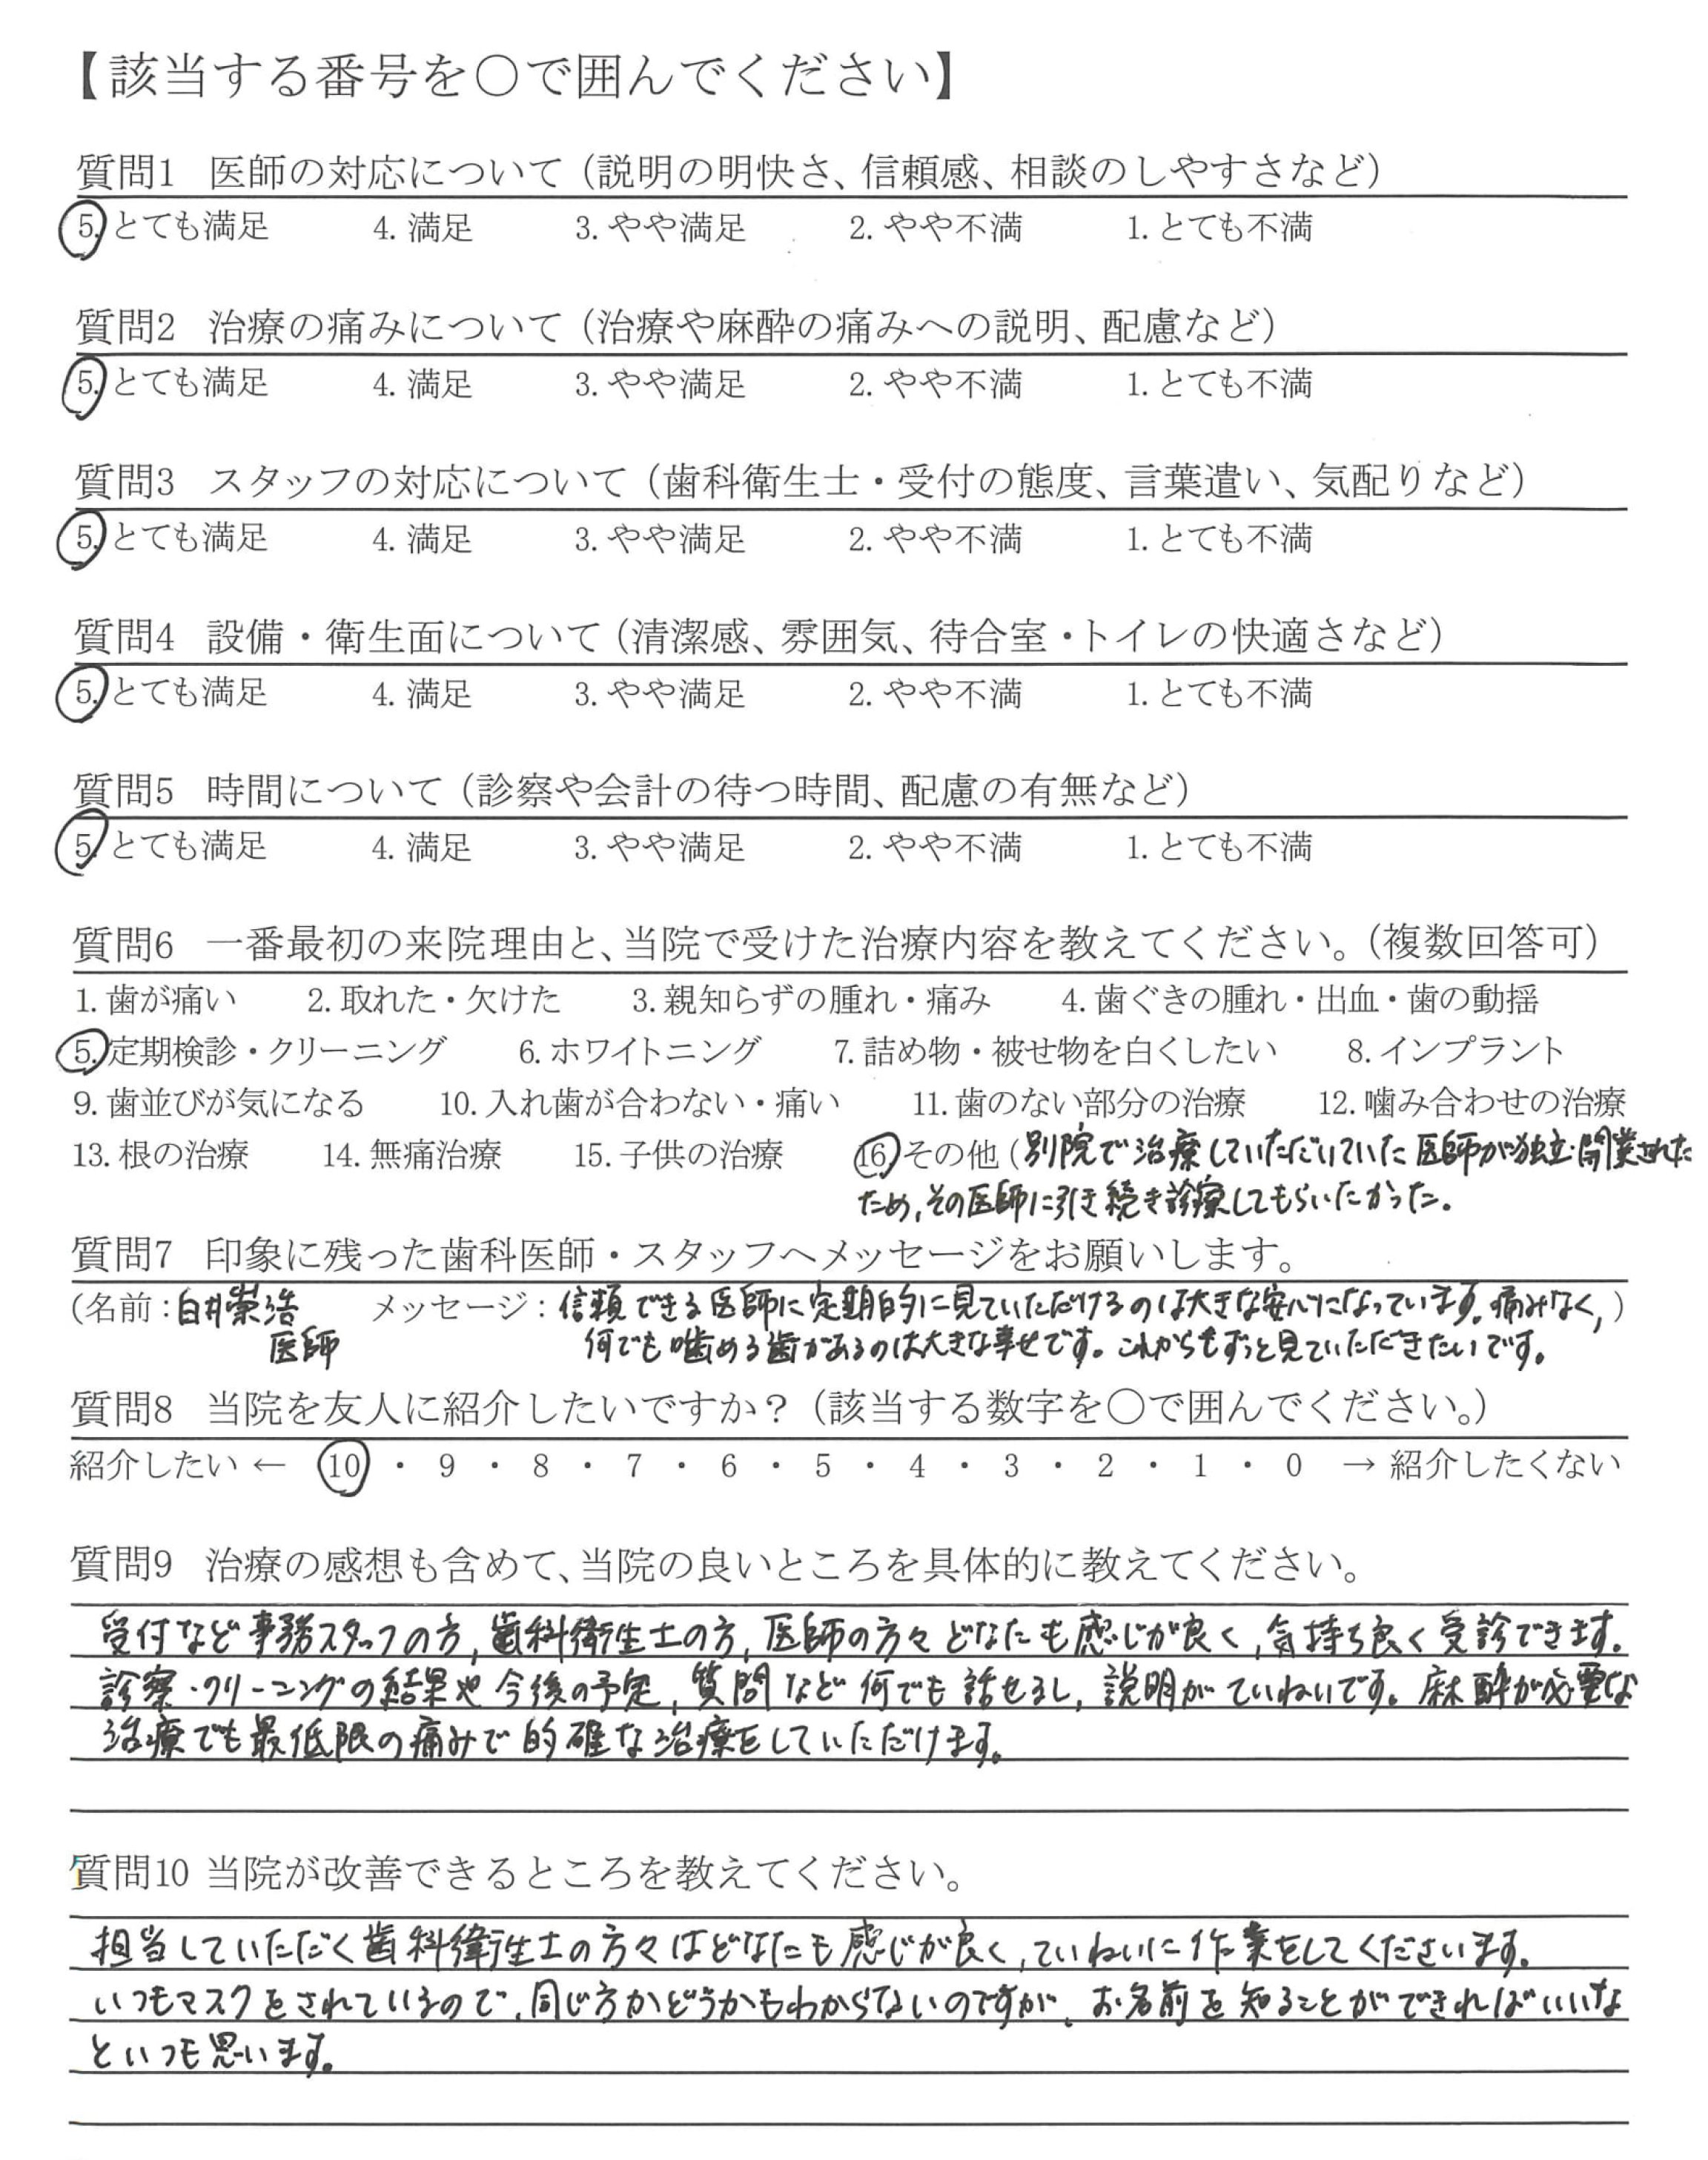 【該当する番号を〇で囲んでください】
質問1 医師の対応について（説明の明快さ、信頼感、相談のしやすさなど）
5. とても満足 4. 満足 3. やや満足 2. やや不満 1. とても不満
質問2 治療の痛みについて（治療や麻酔の痛みへの説明、配慮など）
5. とても満足 4. 満足 3. やや満足 2. やや不満 1. とても不満
質問3 スタッフの対応について（歯科衛生士・受付の態度、言葉遣い、気配りなど）
5. とても満足 4. 満足 3. やや満足 2. やや不満 1. とても不満
質問4 設備・衛生面について（清潔感、雰囲気、待合室・トイレの快適さなど）
5. とても満足 4. 満足 3. やや満足 2. やや不満 1. とても不満
質問5 時間について（診察や会計の待つ時間、配慮の有無など）
5. とても満足 4. 満足 3. やや満足 2. やや不満 1. とても不満
質問6 一番最初の来院理由と、当院で受けた治療内容を教えてください。（複数回答可）
1. 歯が痛い 2. 取れた・欠けた 3. 親知らずの腫れ・痛み 4. 歯ぐきの腫れ・出血・歯の動揺
5. 定期検診・クリーニング 6. ホワイトニング 7. 詰め物・被せ物を白くしたい 8. インプラント
9. 歯並びが気になる 10. 入れ歯が合わない・痛い 11. 歯のない部分の治療 12. 噛み合わせの治療
13. 根の治療 14. 無痛治療 15. 子供の治療 16. その他（別院で治療していただいていた医師が独立・開業された
ため，その医師に引き続き診察してもらいたかった。
質問7 印象に残った歯科医師・スタッフへメッセージをお願いします。
（名前：白井崇浩 メッセージ：信頼できる医師に定期的に見ていただけるのは大きな安心になっています。痛みなく，）
医師 何でも噛める歯があるのは大きな幸せです。これからもずっと見ていただきたいです。
質問8 当院を友人に紹介したいですか？（該当する数字を〇で囲んでください。）
紹介したい ← 10 ・ 9 ・ 8 ・ 7 ・ 6 ・ 5 ・ 4 ・ 3 ・ 2 ・ 1 ・ 0 → 紹介したくない
質問9 治療の感想も含めて、当院の良いところを具体的に教えてください。
受付など事務スタッフの方，歯科衛生士の方，医師の方々どなたも感じが良く，気持ち良く受診できます。
診察・クリーニングの結果や今後の予定，質問など何でも話せるし，説明がていねいです。麻酔が必要な
治療でも最低限の痛みで的確な治療をしていただけます。
質問10 当院が改善できるところを教えてください。
担当していただく歯科衛生士の方々はどなたも感じが良く，ていねいに作業をしてくださいます。
いつもマスクをされているので，同じ方かどうかもわからないのですが，お名前を知ることができればいいな
といつも思います。